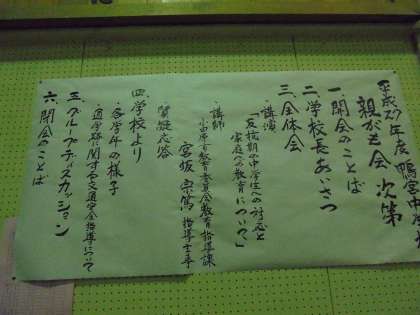 平成27年度 鴨宮中
親がき会 次第
一、開会のことば
二、学校長あいさつ
三、全体会
・講演
「反抗期の中学生への対応と
家庭への教育について」
・講師
小田原市教育委員会教育指導課
宮坂 宗篤 指導主事
質疑応答
四、学校より
・各学年の様子
・通学路に関する交通安全指導について
五、グループディスカッション
六、閉会のことば